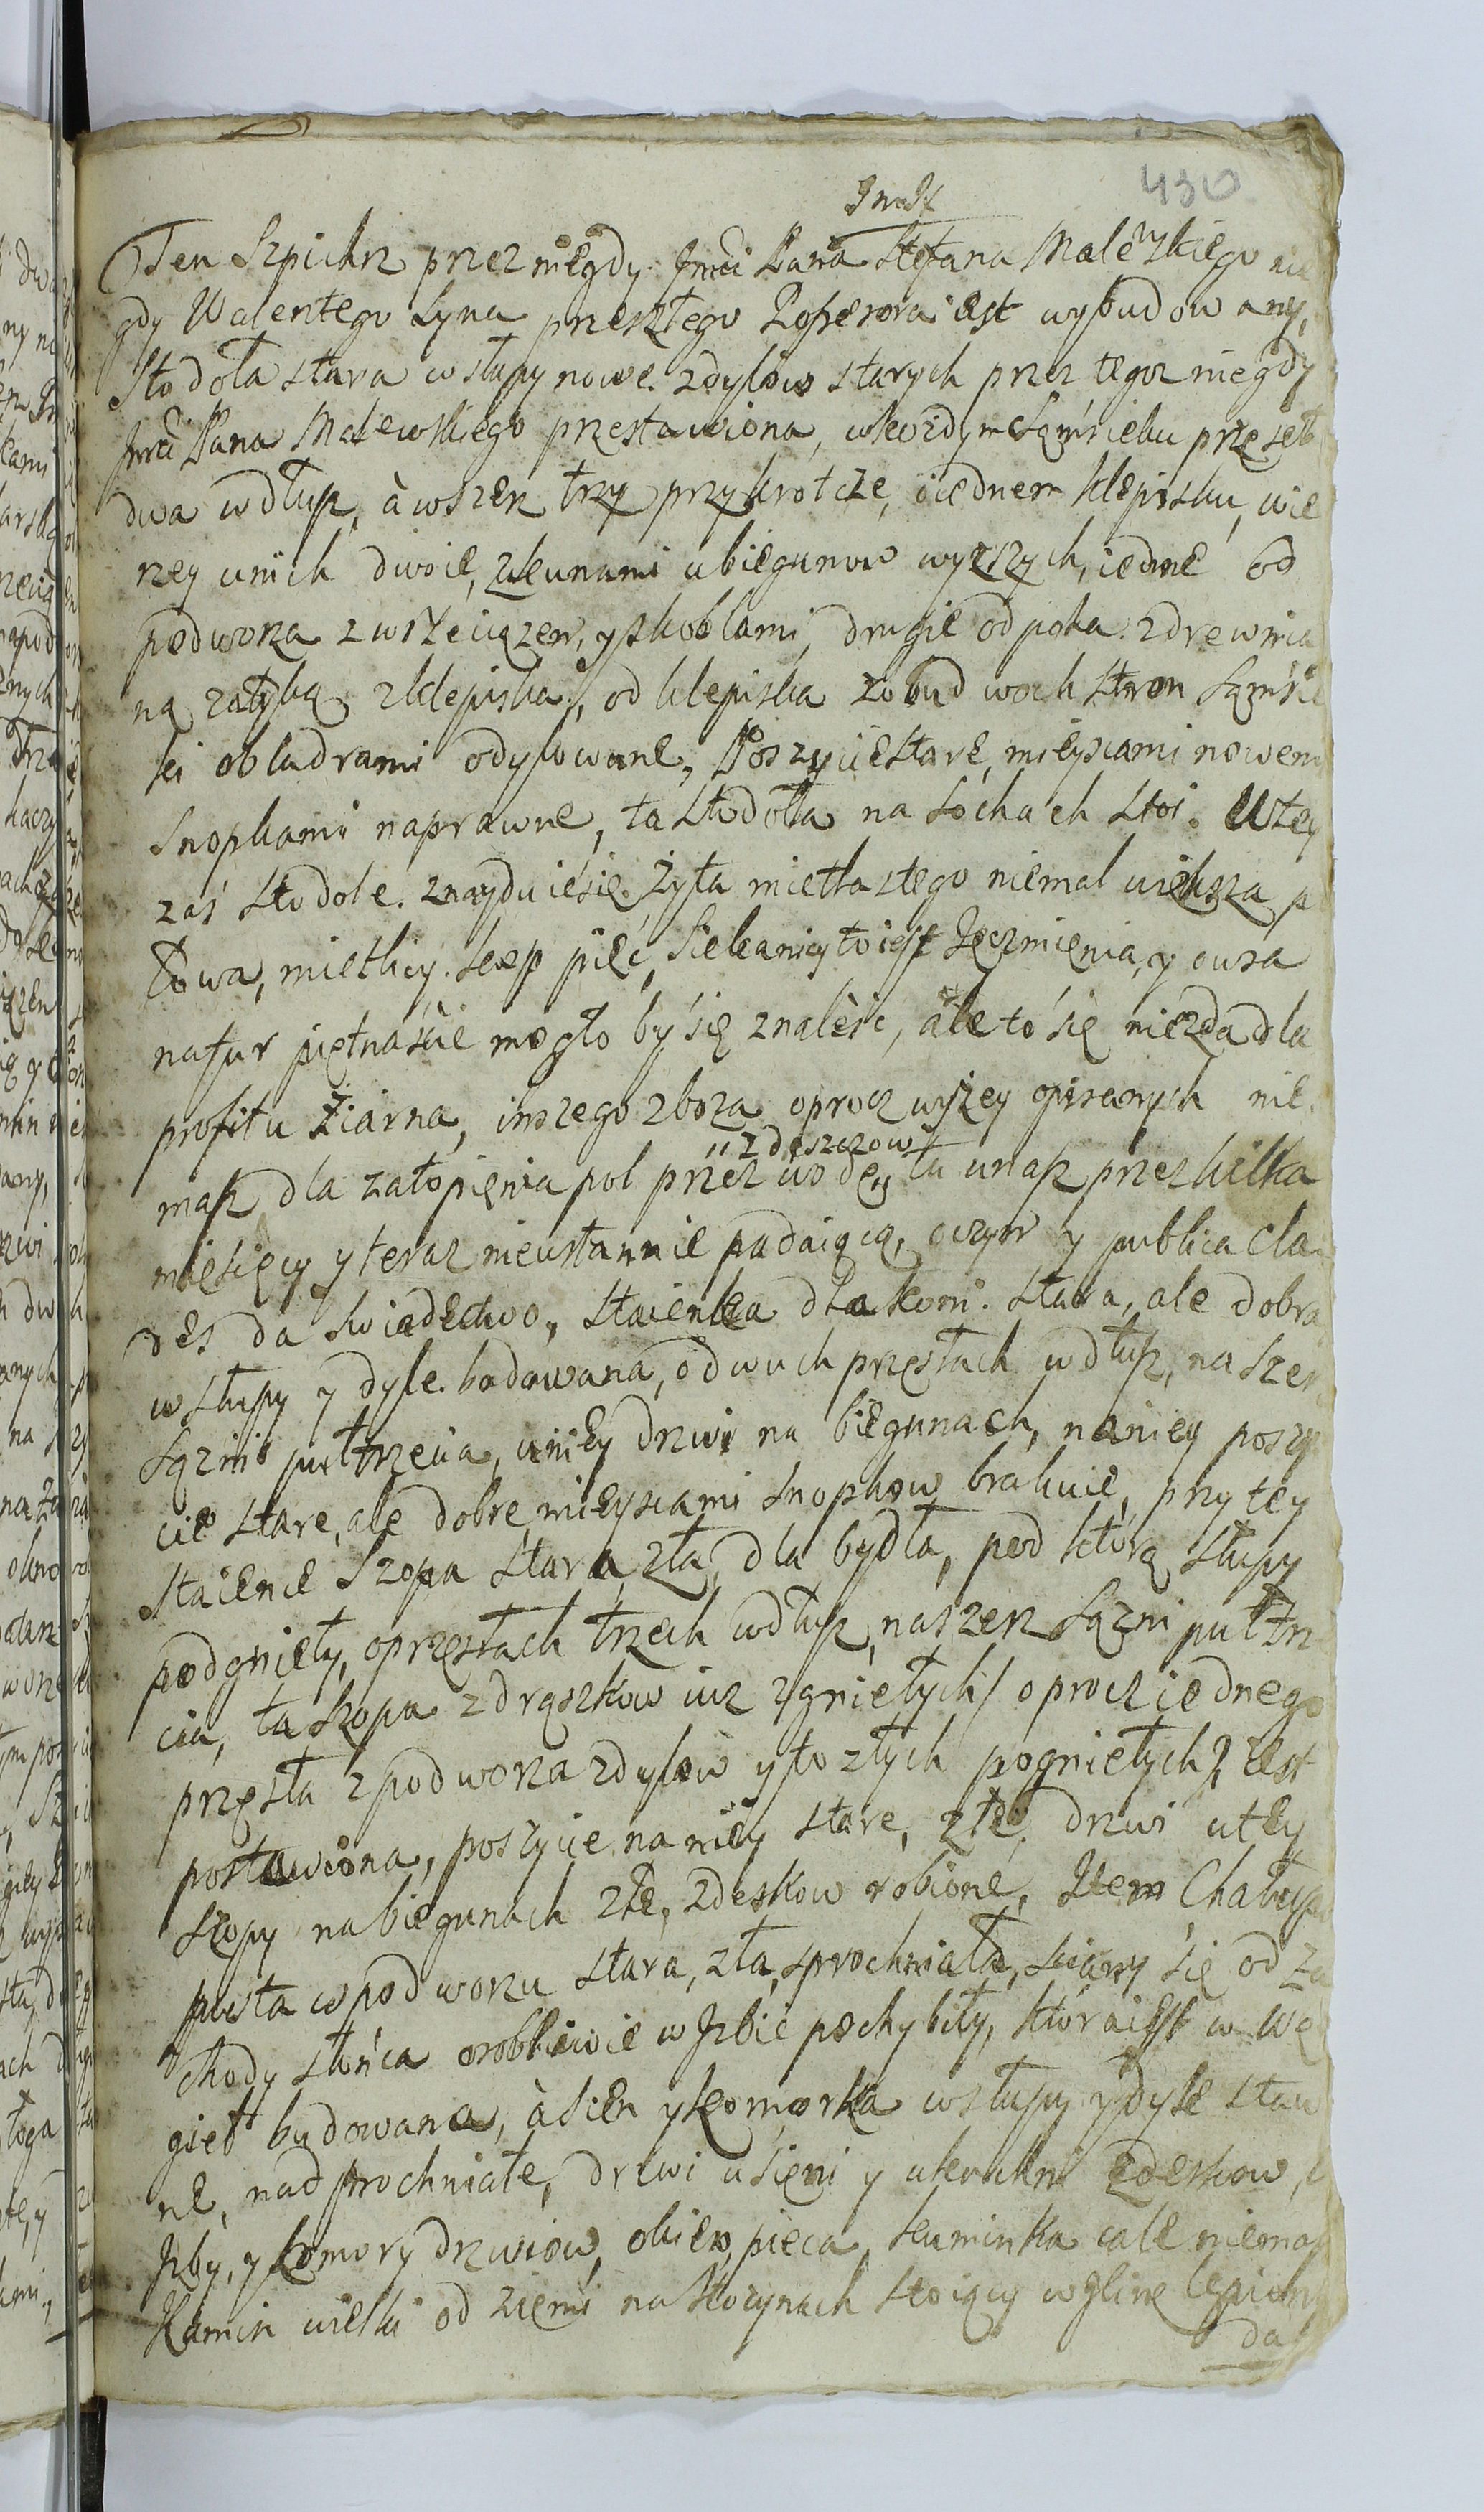 430
Ten Szpichrz przez niegdy Jmći Pana Stefana Malewskiego nie
gdy Walentego Syna przeszłego Possesora iest wybudowany,
Stodoła stara w słupy nowe z dylow starych przez tegoz niegdy
Jmći Pana Malewskiego przestawiona, w kozdym Sąmsieku przeseł
dwa wdłusz, à wszerz trzy przykrotcze, o iednem klepisku, wie
rzey unich dwoie, z kunami u biegunow wyższych, iedne od
podworza z wrzeciązem, y skoblami, drugie od pola z drewnia
ną zatyką z klepiska, od klepiska z obudwoch stron Sąmsie
ki obladrami odylowane, Poszycie stare, mieyscami nowem
Snopkami naprawne, ta stodoła na Sochach stoi. W tey
zaś stodole znayduie się żyta mietlastego niemal większa p
łowa, mietlicy kop pięć, Siekanicy to iest Jęczmienia, y owsa
na fur piętnaście mogło by się znaleść, ale to się niezda dla
profitu Ziarna, inszego zboza oprocz wyżey opisanych nie
masz dla zatopienia pol przez wodę „z deszczow tu unas przez kilka
miesięcy y teraz nieustannie padaiącą, o czym y publica cla
des da swiadectwo, Staienka dla koni stara, ale dobra
w słupy y dyle bodowana, o dwuch przęsłach wdłusz, na szerz
Sązni pułtrzecia, u niey drzwi na biegunach, na niey poszy
cie stare, ale dobre mieyscami snopkow brakuie, przy tey
staience Szopa stara zła dla bydła, pod ktorą słupy
podgnieły, o przęsłach trzech wdłusz, na szerz Sązni pułtrze
cia, ta szopa z drążkow iuz zgniełych / oprocz iednego
przęsła z podworza z dylow y to złych pogniełych / iest
postawiona, poszycie na niey stare, złe, drzwi u tey
szopy na biegunach złe, z deskow robione, Item Chałupa
pusta w podworzu stara, zła, sprochniała, sciany się od za
chody słońca osobliwie w Jzbie pochybiły, ktora iest w Wę
gieł budowana, à Sien y komorka w słupy y dyle staw
ne, nadprochniałe, drzwi u sieni y u kuchni z deskow,
Jzby, y komory drzwiow, okien, pieca, kuminka cale niemasz
Kamin wielki od ziemi na stoczynach stoiący w glinę lepiony
da